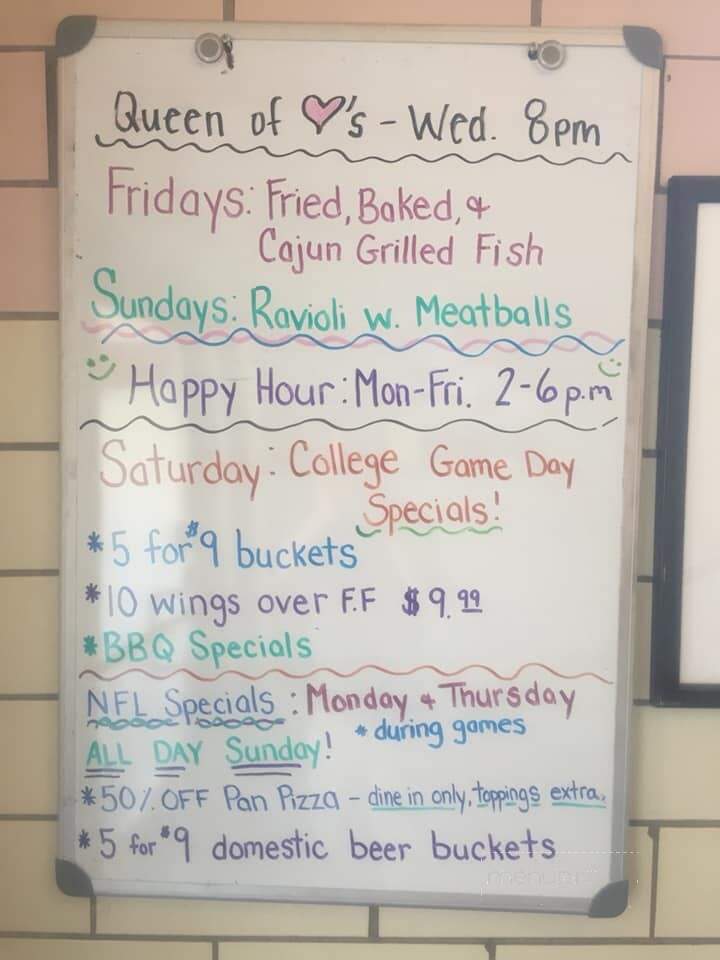 Queen of ♡'s - Wed. 8pm
Fridays: Fried, Baked, &
Cajun Grilled Fish
Sundays: Ravioli w. Meatballs
Happy Hour: Mon-Fri. 2-6 p.m
Saturday: College Game Day
Specials!
*5 for $9 buckets
*10 wings over F.F $9.99
*BBQ Specials
NFL Specials: Monday & Thursday
*during games
ALL DAY Sunday!
*50% OFF Pan Pizza - dine in only, toppings extra.
*5 for $9 domestic beer buckets